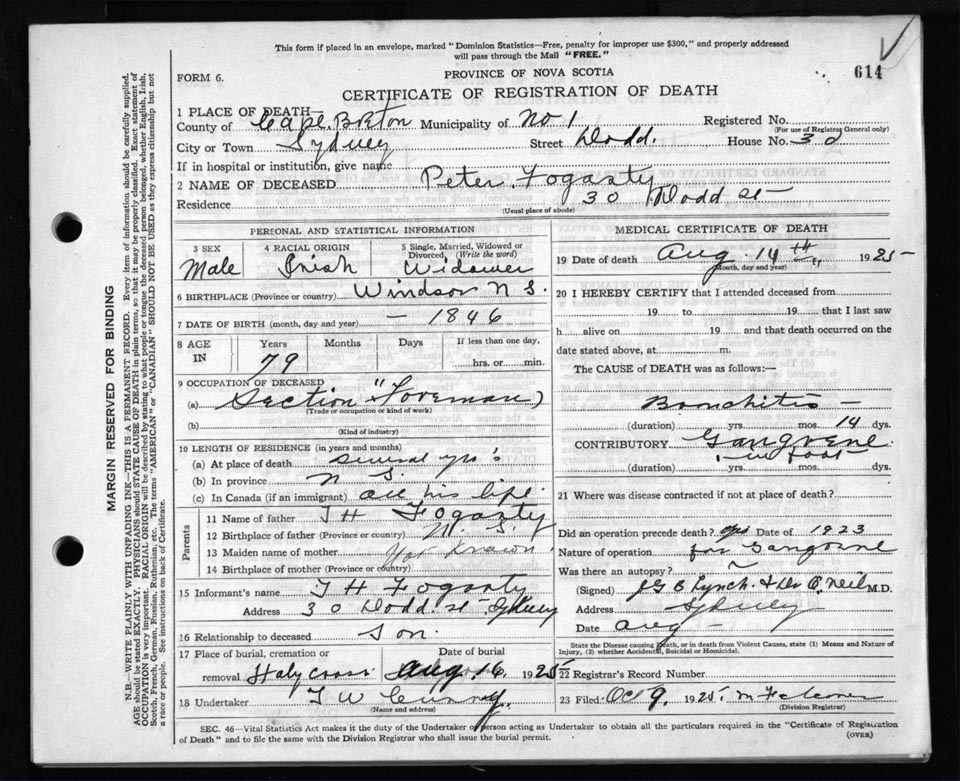 This form if placed in an envelope, marked "Dominion Statistics—Free, penalty for improper use $300," and properly addressed
will pass through the Mail "FREE."
614
FORM 6.
PROVINCE OF NOVA SCOTIA
CERTIFICATE OF REGISTRATION OF DEATH
1 PLACE OF DEATH—
County of Cape Breton Municipality of No 1 Registered No.
(For use of Registrar General only)
City or Town Sydney Street Dodd. House No. 30
If in hospital or institution, give name
2 NAME OF DECEASED Peter Fogarty
Residence 30 Dodd St
(Usual place of abode)
PERSONAL AND STATISTICAL INFORMATION
3 SEX Male
4 RACIAL ORIGIN Irish
5 Single, Married, Widowed or Divorced. (Write the word) Widower
6 BIRTHPLACE (Province or country) Windsor N S.
7 DATE OF BIRTH (month, day and year) — 1846
8 AGE IN Years 79 Months Days If less than one day, hrs. or min.
9 OCCUPATION OF DECEASED
(a) Section "Foreman)
(Trade or occupation or kind of work)
(b)
(Kind of industry)
10 LENGTH OF RESIDENCE (in years and months)
(a) At place of death several yrs's
(b) In province N S.
(c) In Canada (if an immigrant) all his life.
Parents
11 Name of father T H Fogarty
12 Birthplace of father (Province or country) N. S.
13 Maiden name of mother Not Known
14 Birthplace of mother (Province or country)
15 Informant's name T H Fogarty
Address 30 Dodd St Sydney
16 Relationship to deceased Son.
17 Place of burial, cremation or removal Holy Cross Date of burial Aug. 16, 1925
18 Undertaker T W Curry.
(Name and address)
MEDICAL CERTIFICATE OF DEATH
19 Date of death Aug. 14th 1925
(Month, day and year)
20 I HEREBY CERTIFY that I attended deceased from
19 to 19 that I last saw
h alive on 19 and that death occurred on
date stated above, at m.
The CAUSE of DEATH was as follows:—
Bronchitis
(duration) yrs. mos. 14 dys.
CONTRIBUTORY Gangrene
in foot
(duration) yrs. mos. dys.
21 Where was disease contracted if not at place of death?
Did an operation precede death? yes Date of 1923
Nature of operation for Gangrene
Was there an autopsy?
(Signed) J G B Lynch & Dr O'Neil M.D.
Address Sydney
Date Aug
State the Disease causing Death, or in death from Violent Causes, state (1) Means and Nature of
Injury, (2) whether Accidental, Suicidal or Homicidal.
22 Registrar's Record Number
23 Filed Oct 9, 1925.
(Division Registrar)
SEC. 46—Vital Statistics Act makes it the duty of the Undertaker or person acting as Undertaker to obtain all the particulars required in the "Certificate of Registration
of Death" and to file the same with the Division Registrar who shall issue the burial permit.
(OVER)
MARGIN RESERVED FOR BINDING
N.B.—WRITE PLAINLY WITH UNFADING INK—THIS IS A PERMANENT RECORD. Every item of information should be carefully supplied.
AGE should be stated EXACTLY. PHYSICIANS should STATE CAUSE OF DEATH in plain terms, so that it may be properly classified. Exact statement of
OCCUPATION is very important. RACIAL ORIGIN will be described by stating to what people or tongue the deceased person belonged, whether English, Irish,
Scotch, French, German, Russian, Ruthenian, etc. The terms "AMERICAN" or "CANADIAN" SHOULD NOT BE USED as they express citizenship but not
a race or people. See instructions on back of Certificate.